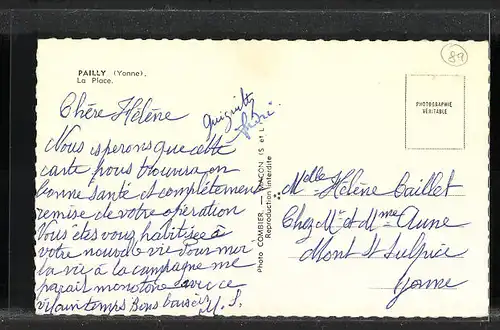 PAILLY (Yonne).
La Place.
89
PHOTOGRAPHIE
VÉRITABLE
Chère Hélène
Nous esperons que cette
carte vous trouvera en
bonne santé et complètement
remise de votre opération
Vous êtes vous habituée à
votre nouvelle vie pour moi
la vie à la campagne me
parait monotone avec ce
vilain temps Bons baisers M. S.
Photo COMBIER. — MACON (S et L
Reproduction interdite
Melle Hélène Caillet
Chez Mr et Mme Aune
Mont St Sulpice
Yonne